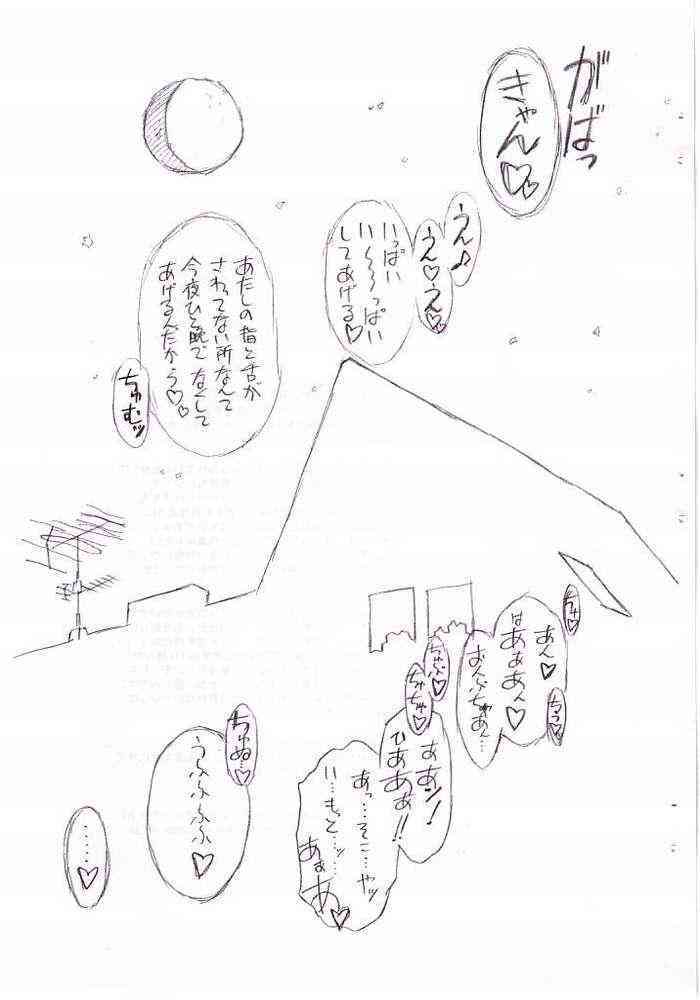 がばっ
きゃん♡♡
うん♪
うん♡うん♡
いっぱい
い〜〜〜っぱい
してあげる♡
あたしの指と舌が
さわってない所なんて
今夜ひと晩で なくして
あげるんだから♡♡
ちゅむッ
ちゅ♡
あん♡
はあぁあん♡
ちう♡
おんぷちゃあん…
ちゅぷ♡
ちゅちゅ♡
ああン!
ひああぁ!!
あっ…そこ…やッ
い…もっと…ッ…
あぁあ♡
ちゅぬ…♡
うふふふふふ♡
……♡